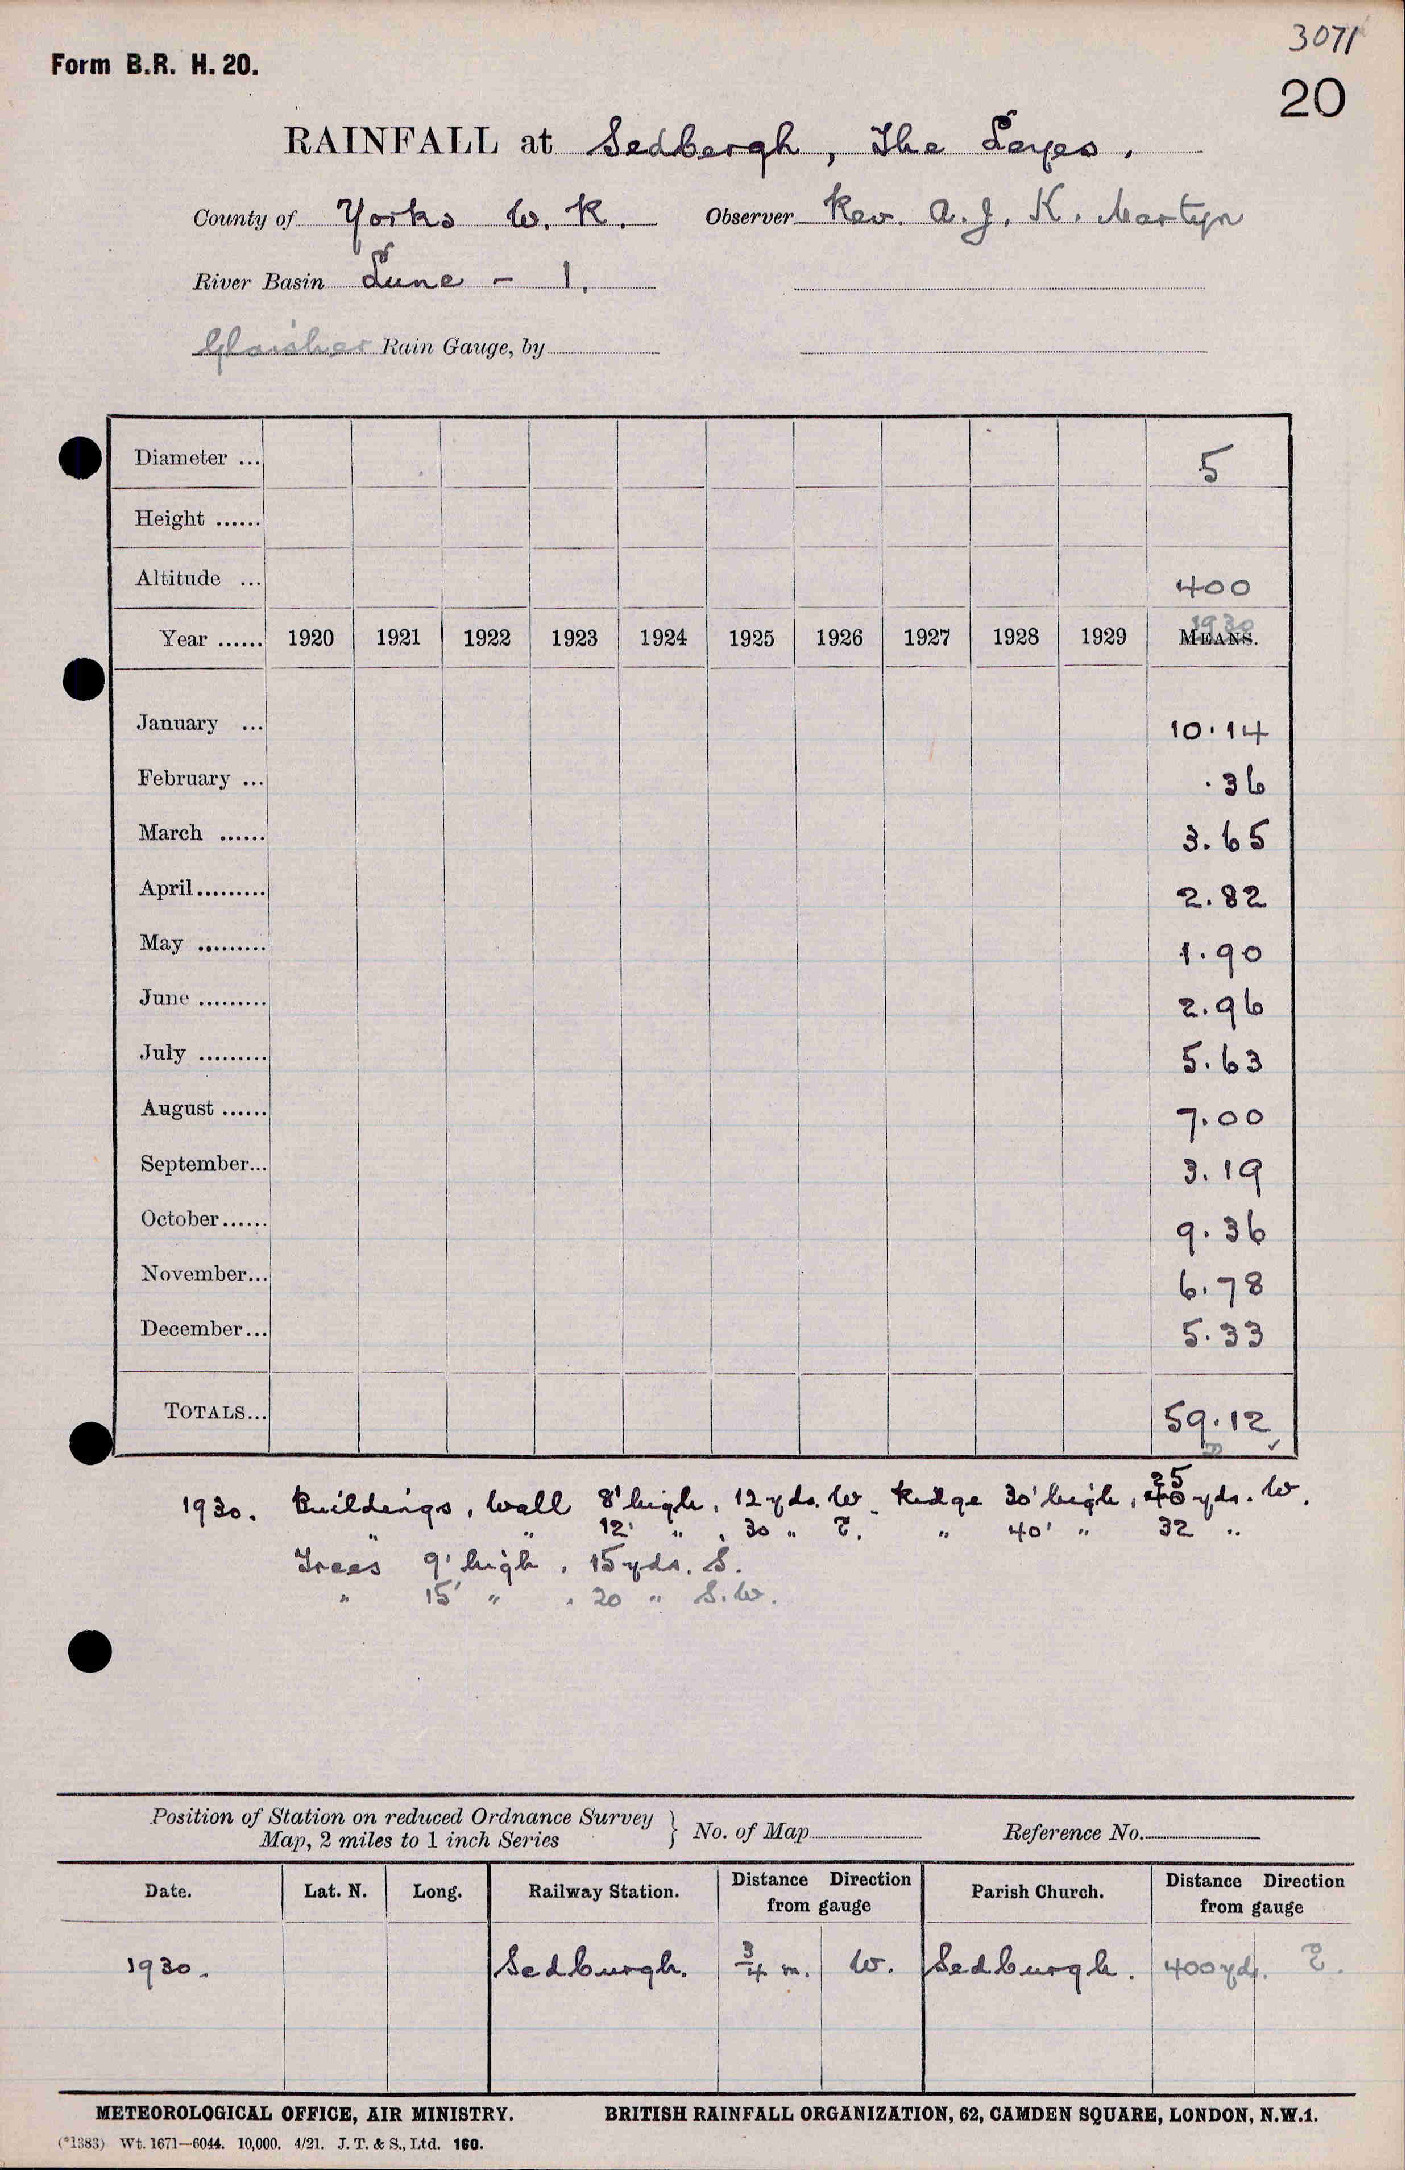 3071
Form B.R. H. 20.
20
RAINFALL at Sedbergh, The Leyes.
County of Yorks W. R. Observer Rev. A. J. K. Martyn
River Basin Lune - 1.
Glaisher Rain Gauge, by
Diameter ... 5
Height ......
Altitude ... 400
1930
Year ...... 1920 1921 1922 1923 1924 1925 1926 1927 1928 1929 MEANS.
January ... 10.14
February ... .36
March ...... 3.65
April......... 2.82
May ......... 1.90
June ......... 2.96
July ......... 5.63
August ...... 7.00
September... 3.19
October...... 9.36
November... 6.78
December... 5.33
TOTALS... 59.12
1930. Buildings, Wall 8' high, 12 yds. W. Ridge 30' high, 40 25 yds. W.
" " 12' " , 30 " E. " 40' " 32 "
Trees 9' high , 15 yds. S.
" 15' " , 20 " S.W.
Position of Station on reduced Ordnance Survey
Map, 2 miles to 1 inch Series } No. of Map Reference No.
Date. Lat. N. Long. Railway Station. Distance Direction from gauge Parish Church. Distance Direction from gauge
1930. Sedburgh. 3/4 m. W. Sedburgh. 400 yds. E.
METEOROLOGICAL OFFICE, AIR MINISTRY. BRITISH RAINFALL ORGANIZATION, 62, CAMDEN SQUARE, LONDON, N.W.1.
(*1383) Wt. 1671—6044. 10,000. 4/21. J. T. & S., Ltd. 160.